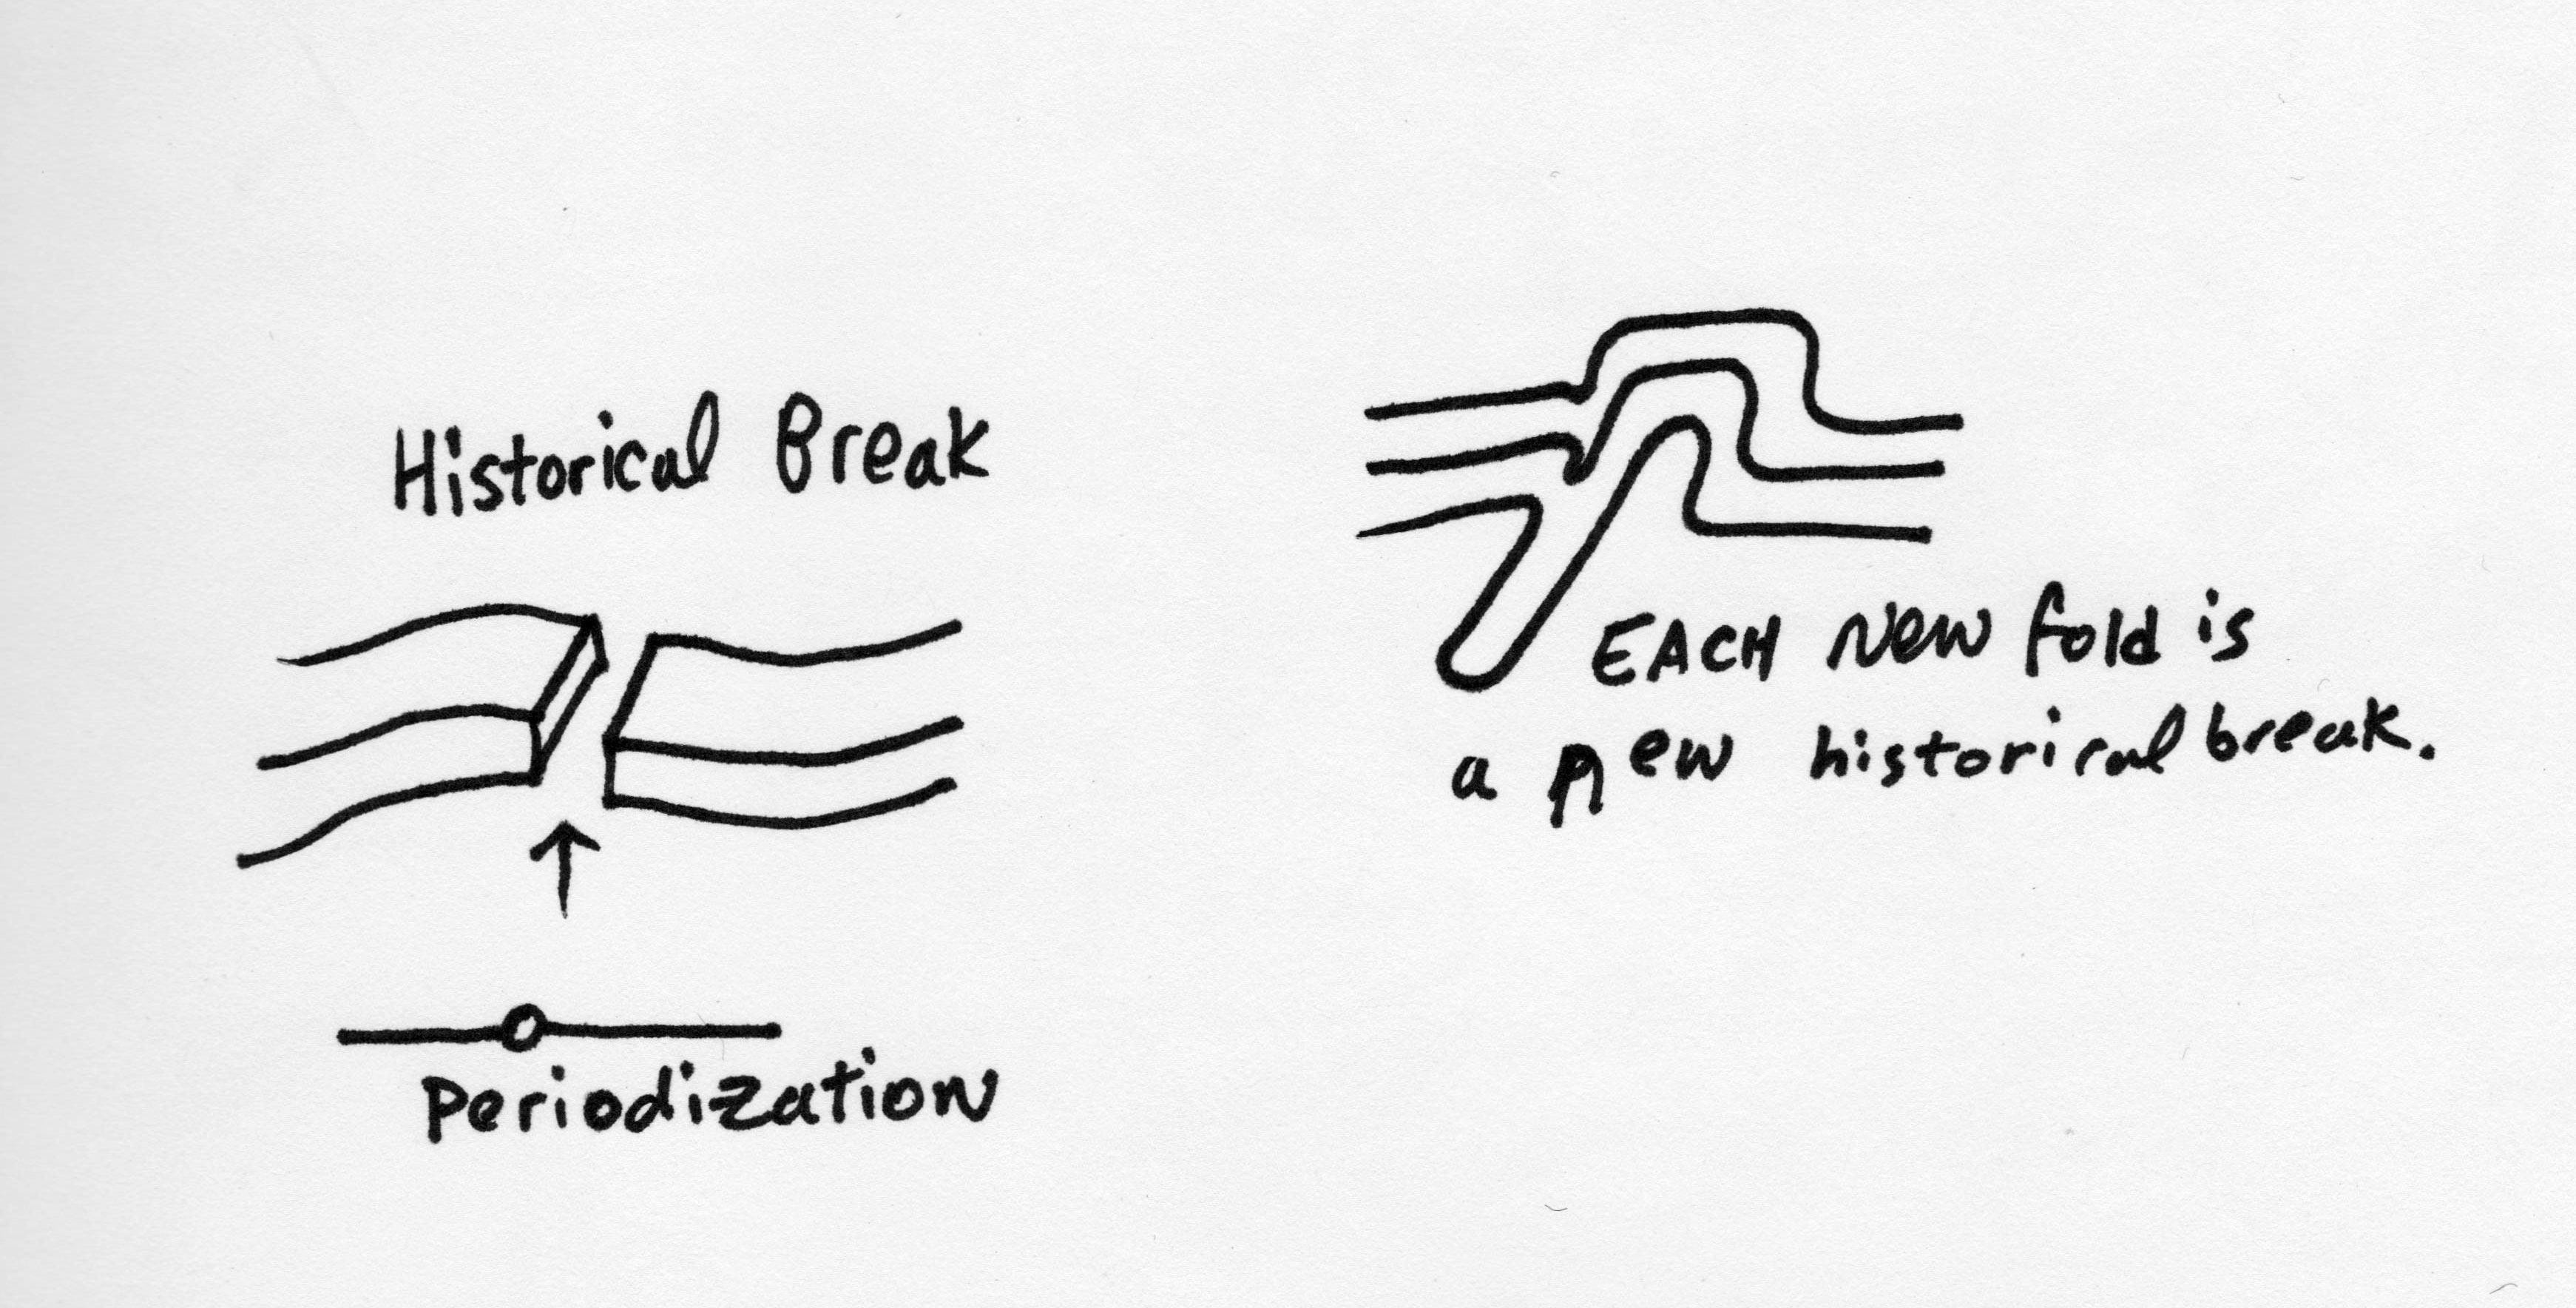 Historical Break
Periodization
EACH New fold is
a new historical break.